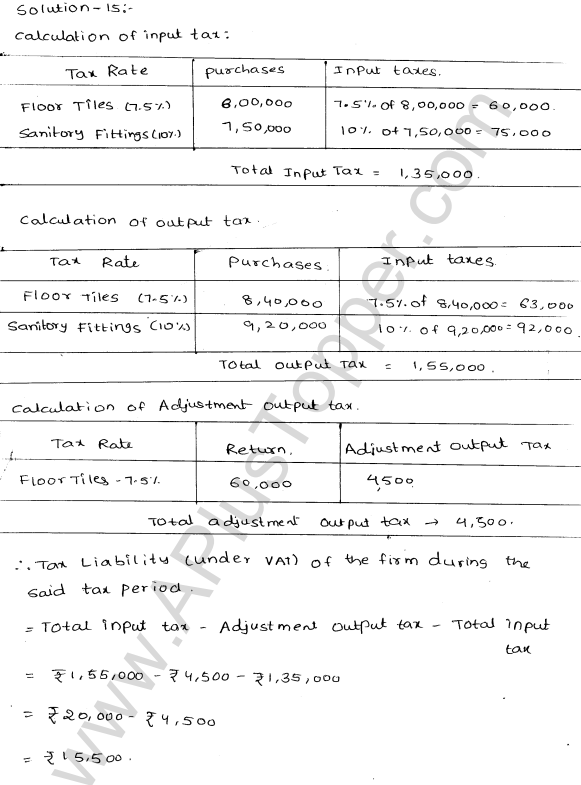 Solution-15:-
Calculation of input tax:
Tax Rate Purchases Input taxes.
Floor Tiles (7.5%) 8,00,000 7.5% of 8,00,000 = 60,000.
Sanitory Fittings (10%) 7,50,000 10% of 7,50,000 = 75,000
Total Input Tax = 1,35,000.
Calculation of output tax.
Tax Rate Purchases. Input taxes.
Floor Tiles (7.5%) 8,40,000 7.5% of 8,40,000 = 63,000
Sanitory Fittings (10%) 9,20,000 10% of 9,20,000 = 92,000.
Total output Tax = 1,55,000.
Calculation of Adjustment output tax.
Tax Rate Return. Adjustment output Tax
Floor Tiles - 7.5% 60,000 4,500
Total adjustment output tax → 4,500.
∴ Tax Liability (under VAT) of the firm during the
said tax period.
= Total input tax - Adjustment output tax - Total input
tax
= ₹1,55,000 - ₹4,500 - ₹1,35,000
= ₹20,000 - ₹4,500
= ₹15,500.
www.APlusTopper.com